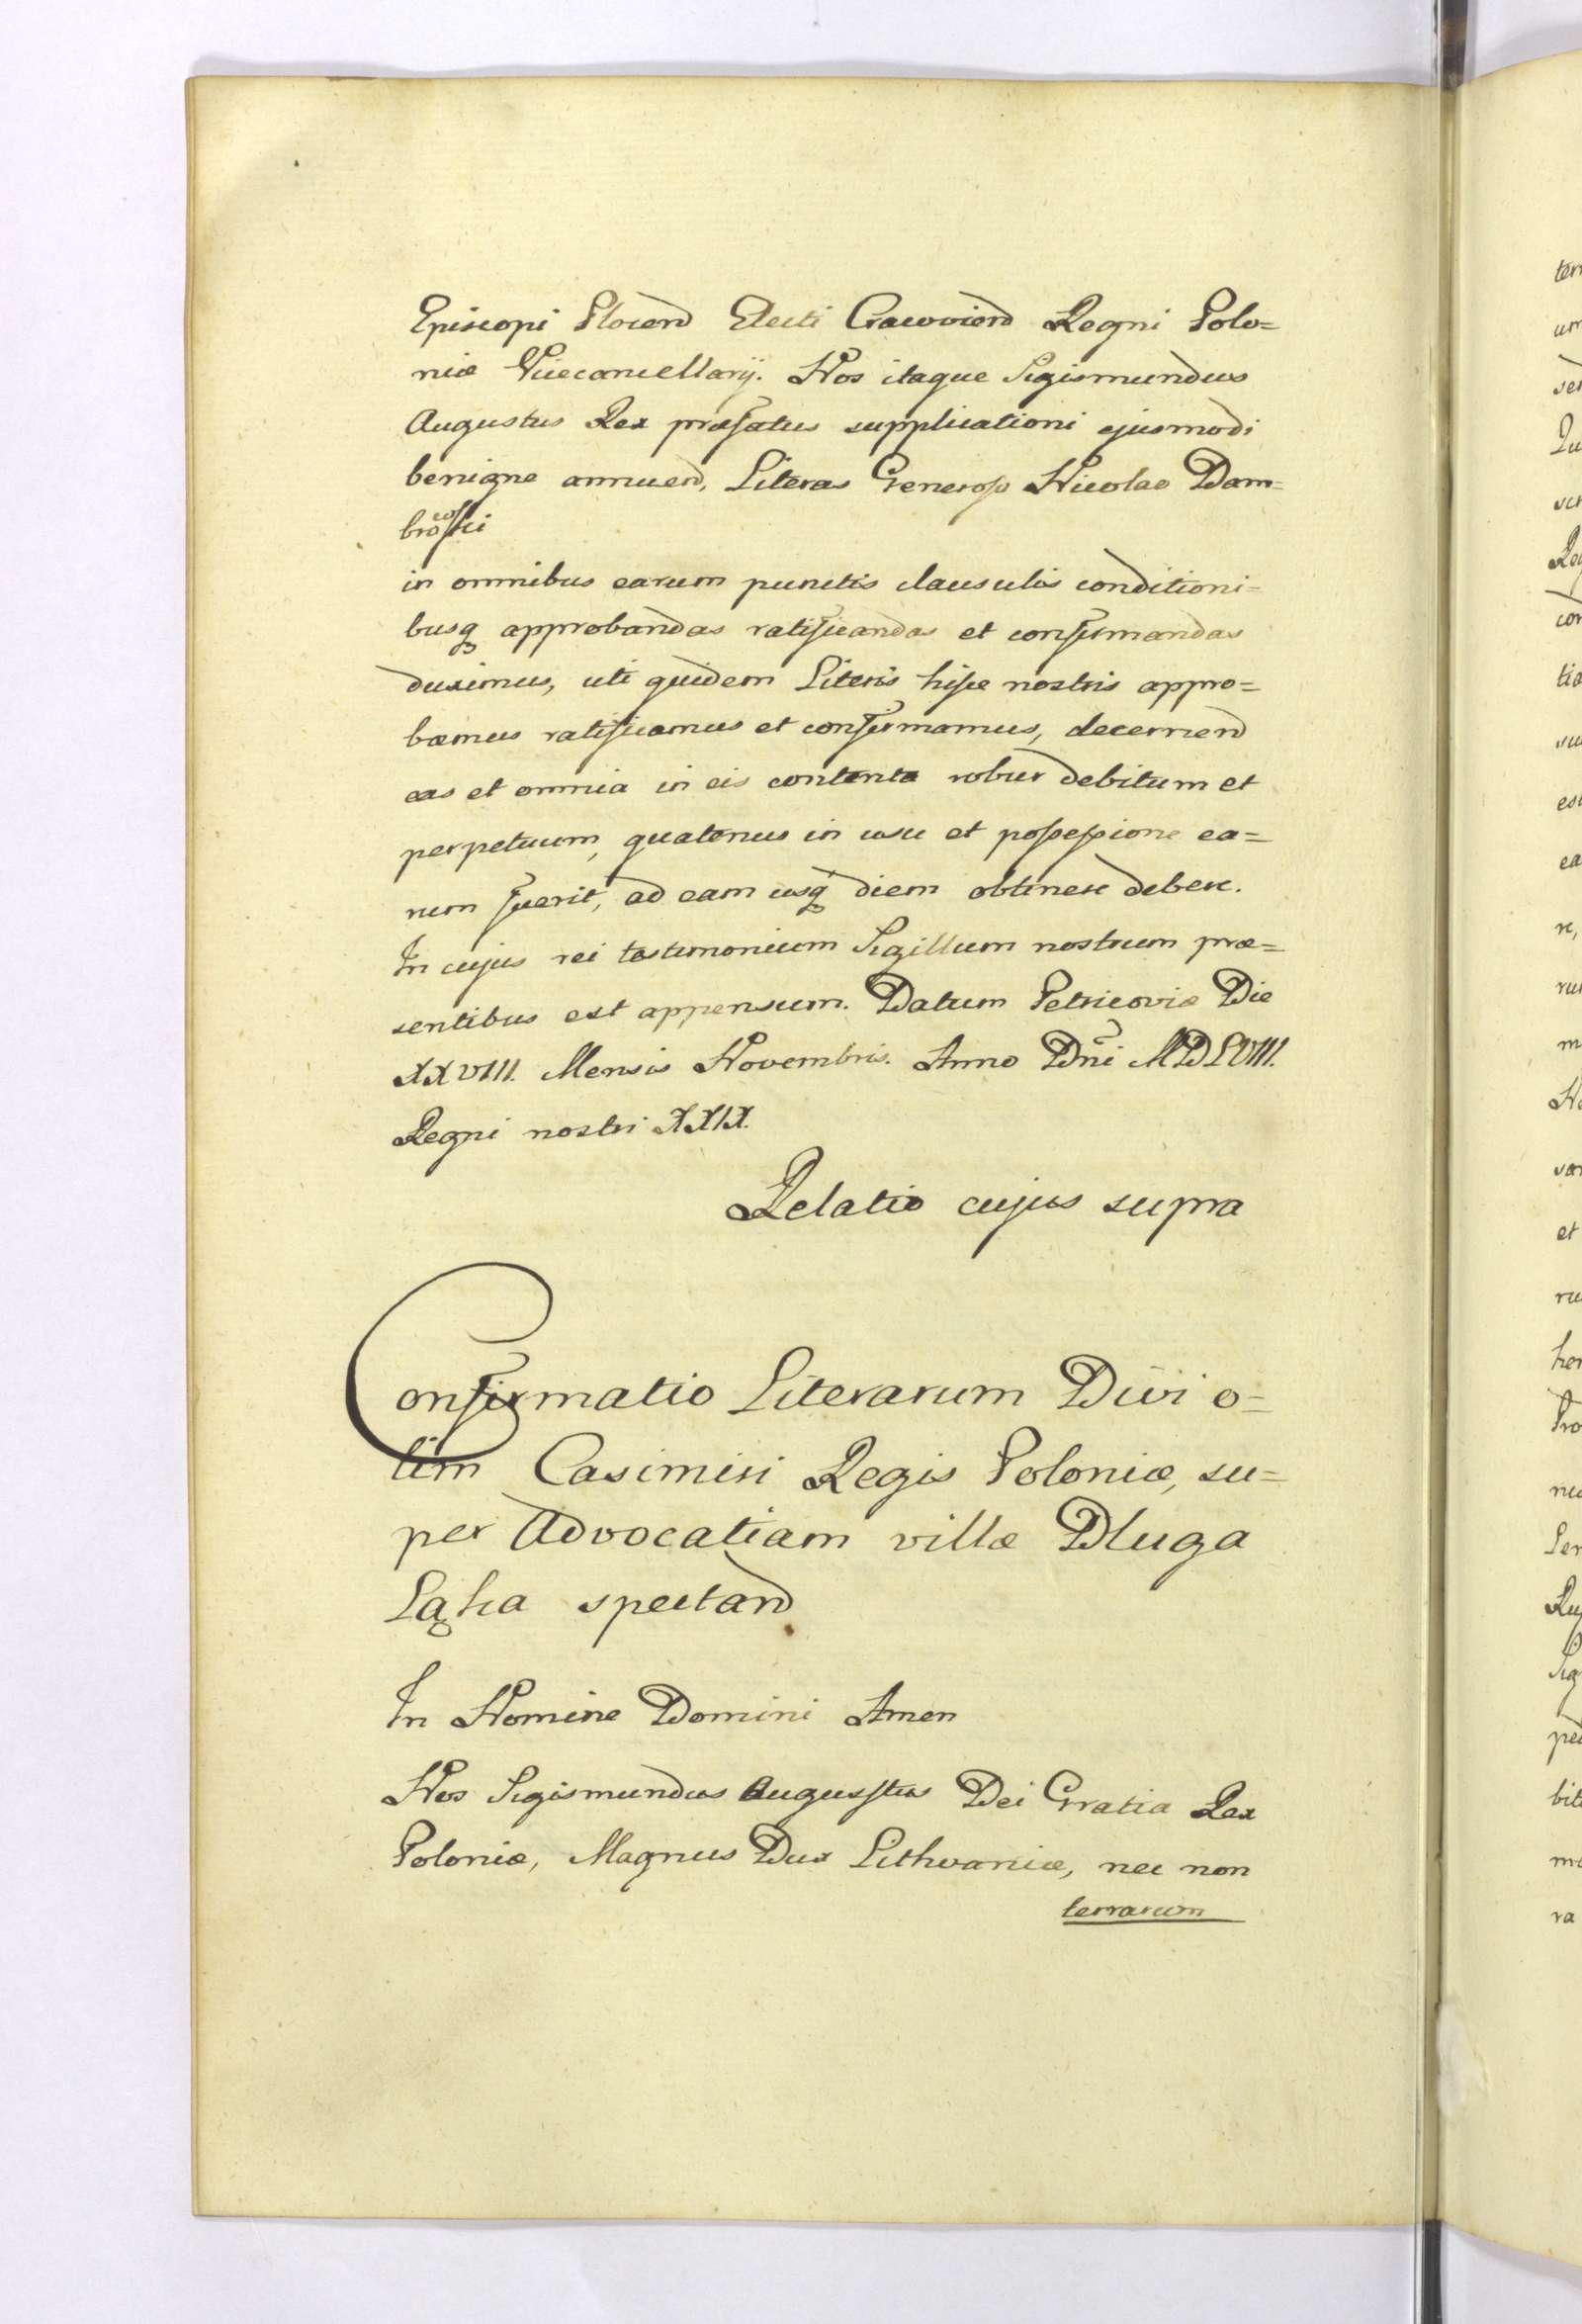 Episcopi Plocen͠ Electi Cracovien͠ Regni Polo=
niæ Vicecancellarij. Nos itaque Sigismundus
Augustus Rex præfatus supplicationi ejusmodi
benigne annuen͠, Literas Generoso Nicolao Dam=
bro
in omnibus earum punctis clausulis conditioni=
busq approbandas ratificandas et confirmandas
duximus, uti quidem Literis hisce nostris appro=
bamus ratificamus et confirmamus, decernen͠
eas et omnia in eis contenta robur debitum et
perpetuum, quatenus in usu et possessione ea=
rum fuerit, ad eam usq diem obtinere debere.
In cujus rei testimonium Sigillum nostrum præ=
sentibus est appensum. Datum Petricoviæ Die
XXVIII. Mensis Novembris. Anno Dñi MDLVIII.
Regni nostri XXIX.
Relatio cujus supra
Confirmatio Literarum Divi o=
lim Casimiri Regis Poloniæ, su=
per Advocatiam villæ Dluga
Ląka spectan͠
In Nomine Domini Amen
Nos Sigismundus Augustus Dei Gratia Rex
Poloniæ, Magnus Dux Lithvaniæ, nec non
terrarum